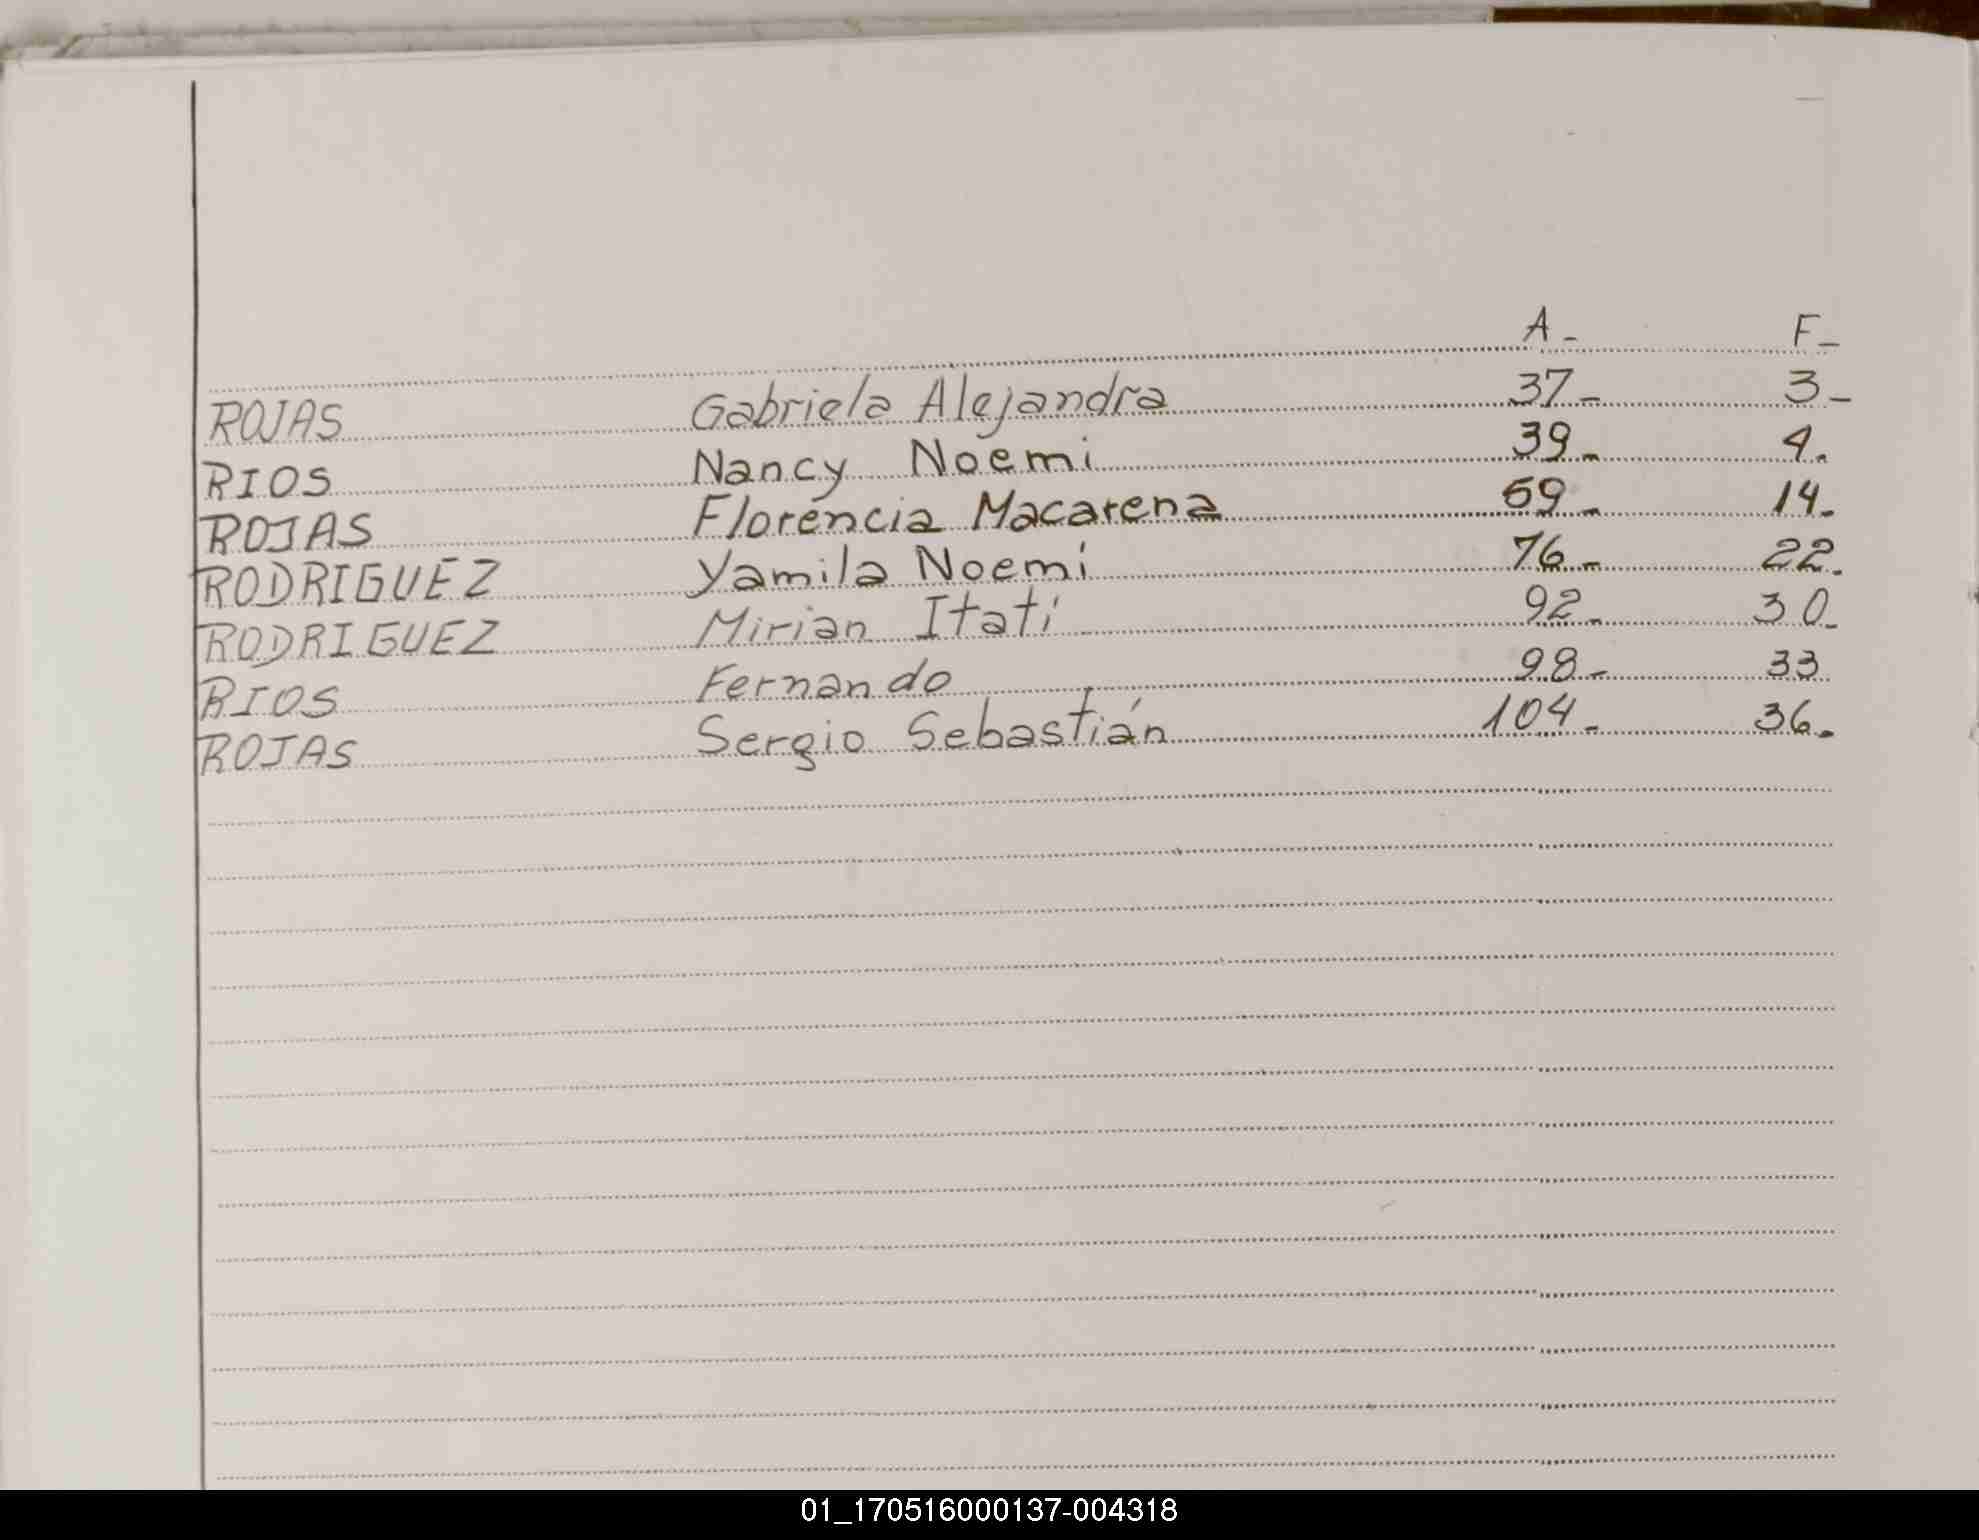 A- F-
ROJAS Gabriela Alejandra 37- 3-
RIOS Nancy Noemi 39- 4.
ROJAS Florencia Macarena 59- 14.
RODRIGUEZ Yamila Noemi 76- 22.
RODRIGUEZ Mirian Itatí 92- 30-
RIOS Fernando 98- 33
ROJAS Sergio Sebastián 104- 36.
01_170516000137-004318